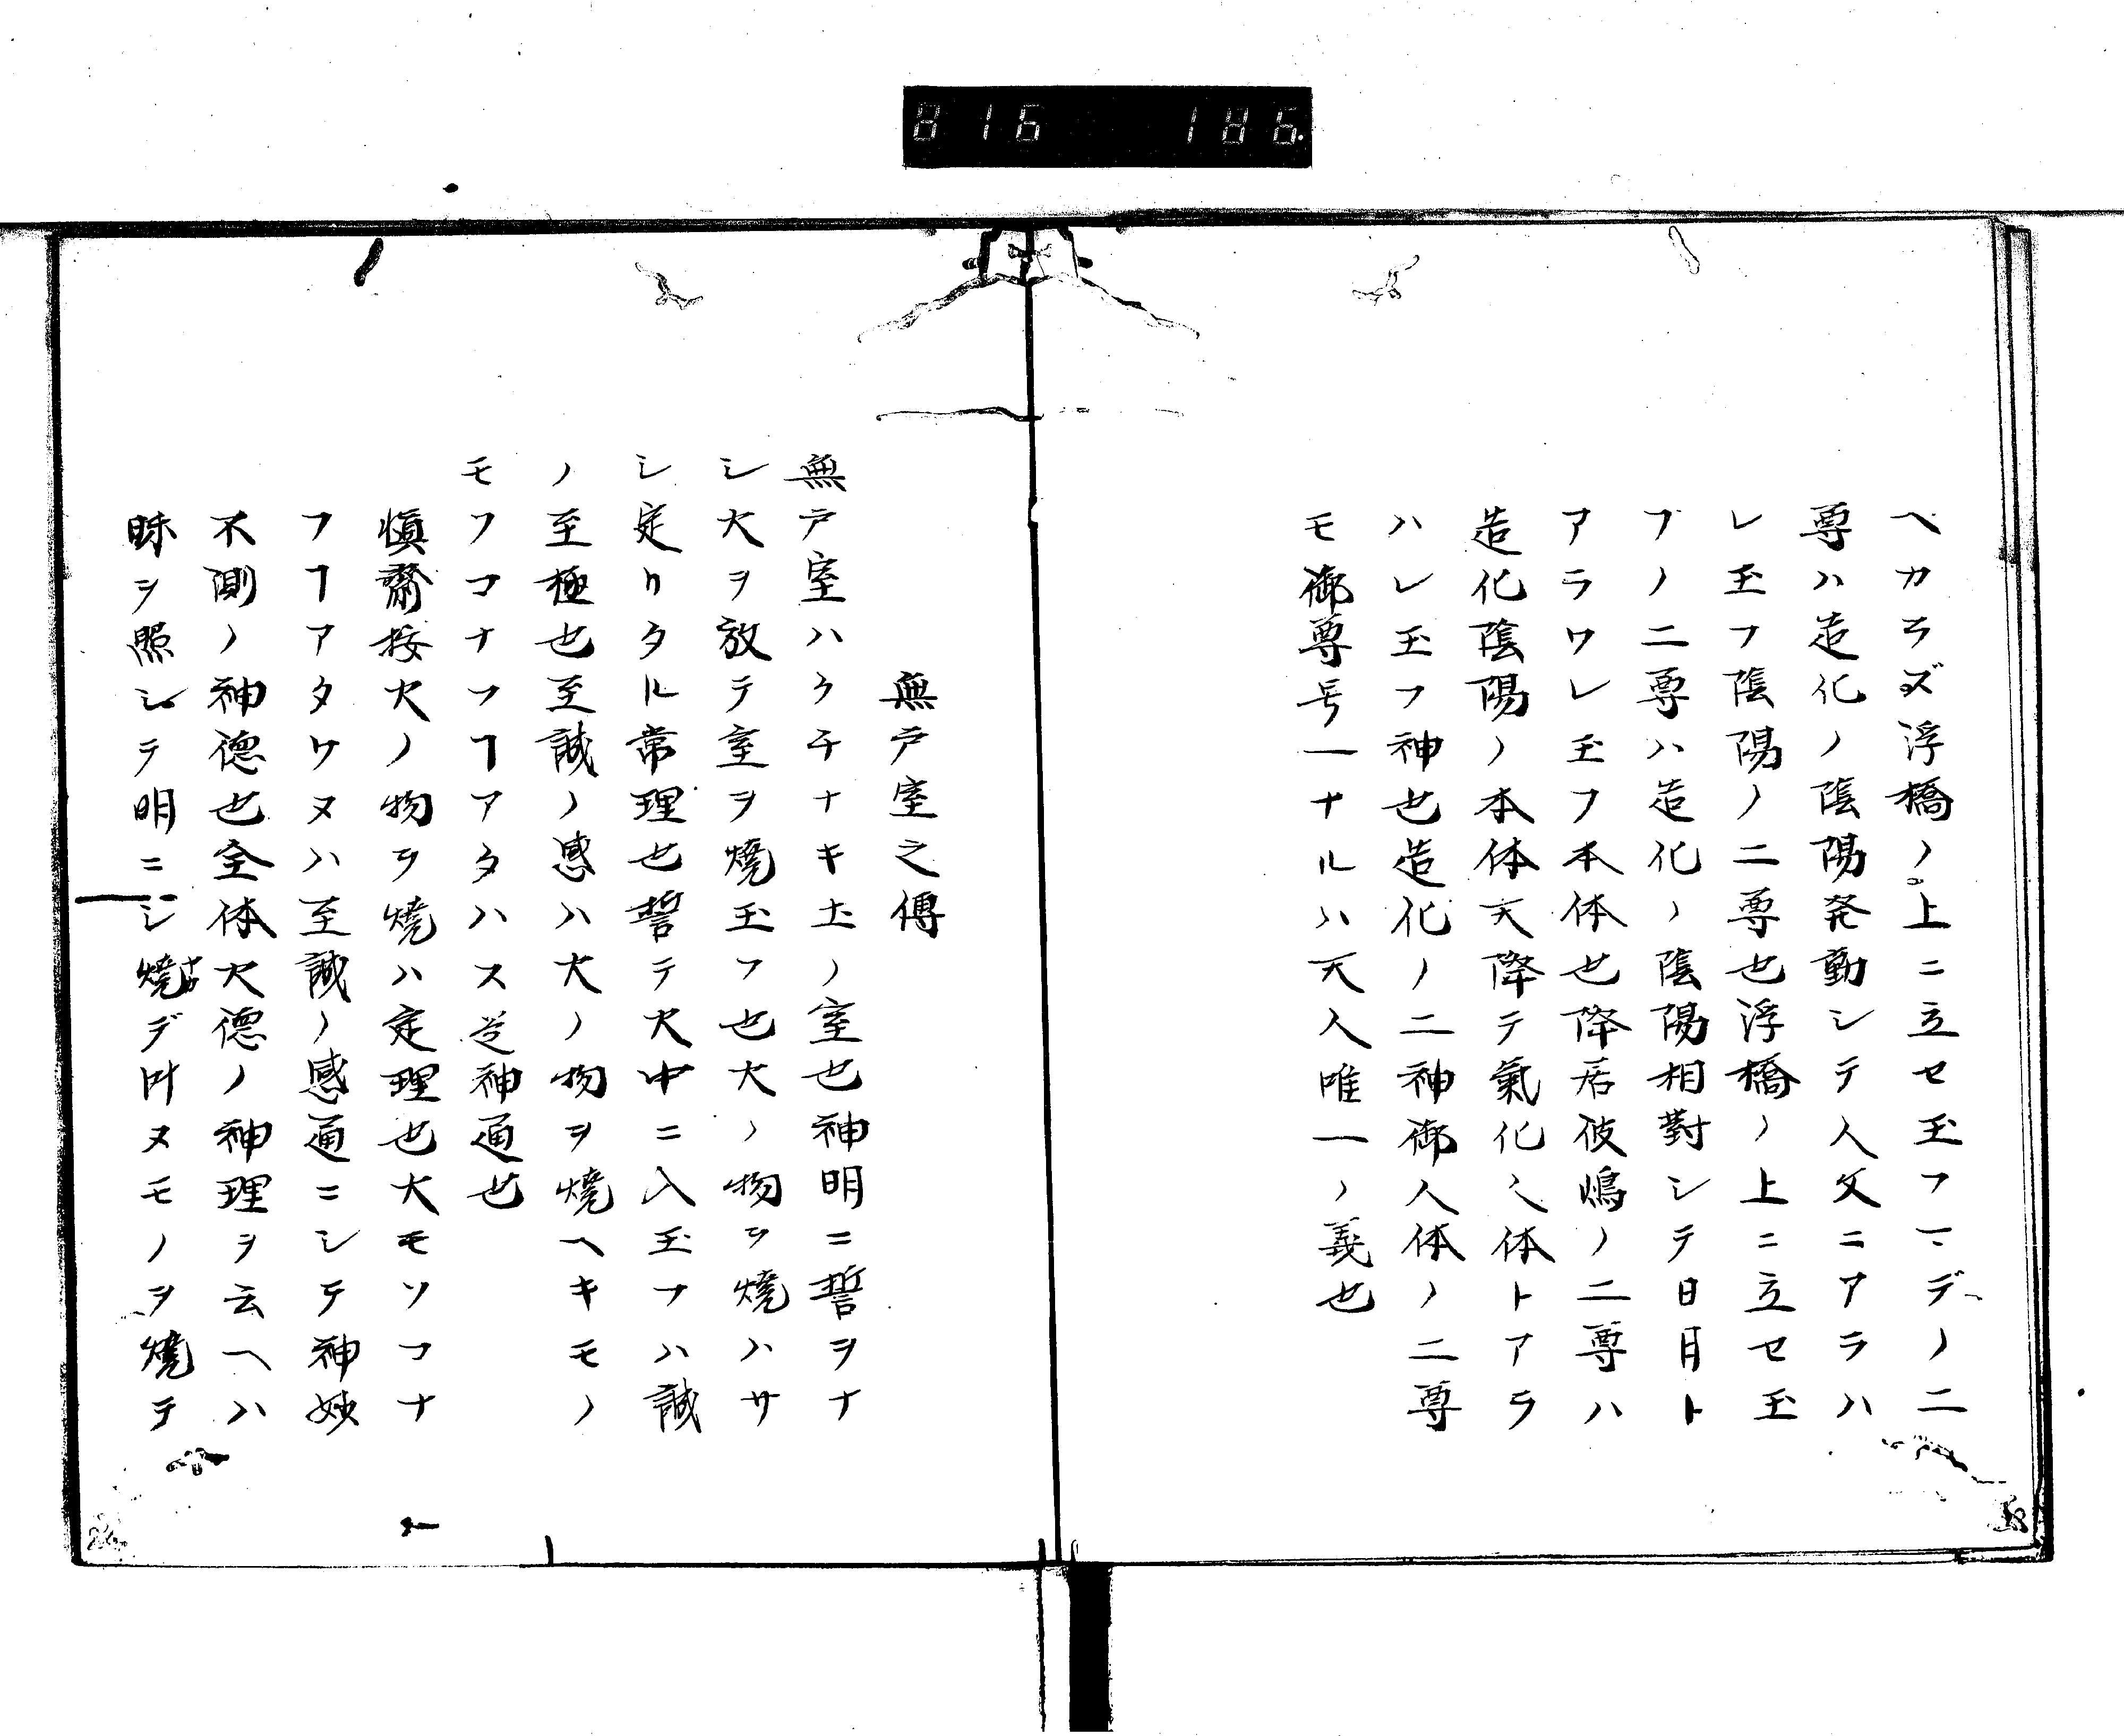 816 186.
ヘカラズ浮橋ノ上ニ立セ玉フマデノ二
尊ハ造化ノ陰陽発動シテ人文ニアラハ
レ玉フ陰陽ノ二尊也浮橋ノ上ニ立セ玉
フノ二尊ハ造化ノ陰陽相對シテ日月ト
アラワレ玉フ本体也降居彼嶋ノ二尊ハ
造化陰陽ノ本体天降テ氣化之体トアラ
ハレ玉フ神也造化ノ二神御人体ノ二尊
モ御尊号一ナルハ天人唯一ノ義也
無戸室之傳
無戸室ハウチナキ土ノ室也神明ニ誓ヲナ
シ火ヲ放テ室ヲ燒玉フ也火ノ物ヲ燒ハサ
シ定リタル常理也誓テ火中ニ入玉フハ誠
ノ至極也至誠ノ感ハ火ノ物ヲ燒ヘキモノ
モフコナフヿアタハス是神通也
愼齋按火ノ物ヲ燒ハ定理也火モソコナ
フヿアタワヌハ至誠ノ感通ニシテ神妙
不測ノ神德也全体火德ノ神理ヲ云ヘハ
昧ヲ照シテ明ニシ燒デ叶ヌモノヲ燒テ